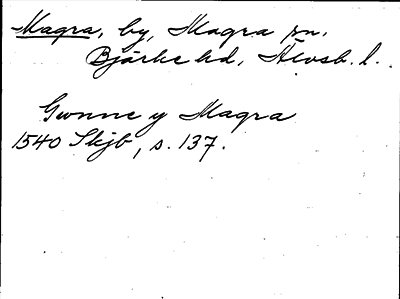 Magra, by, Magra sn.
Bjärke hd, Älvsb. l.
Gunne y Magra
1540 Skjb, s. 137.